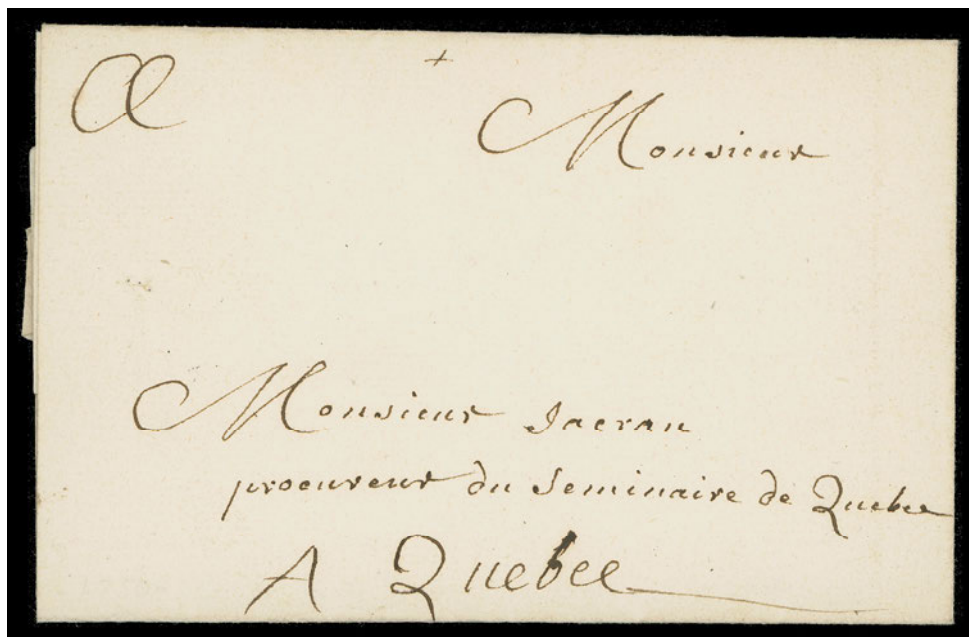 +
Monsieur
Monsieur Jacrau
procureur du Seminaire de Quebec
A Quebec